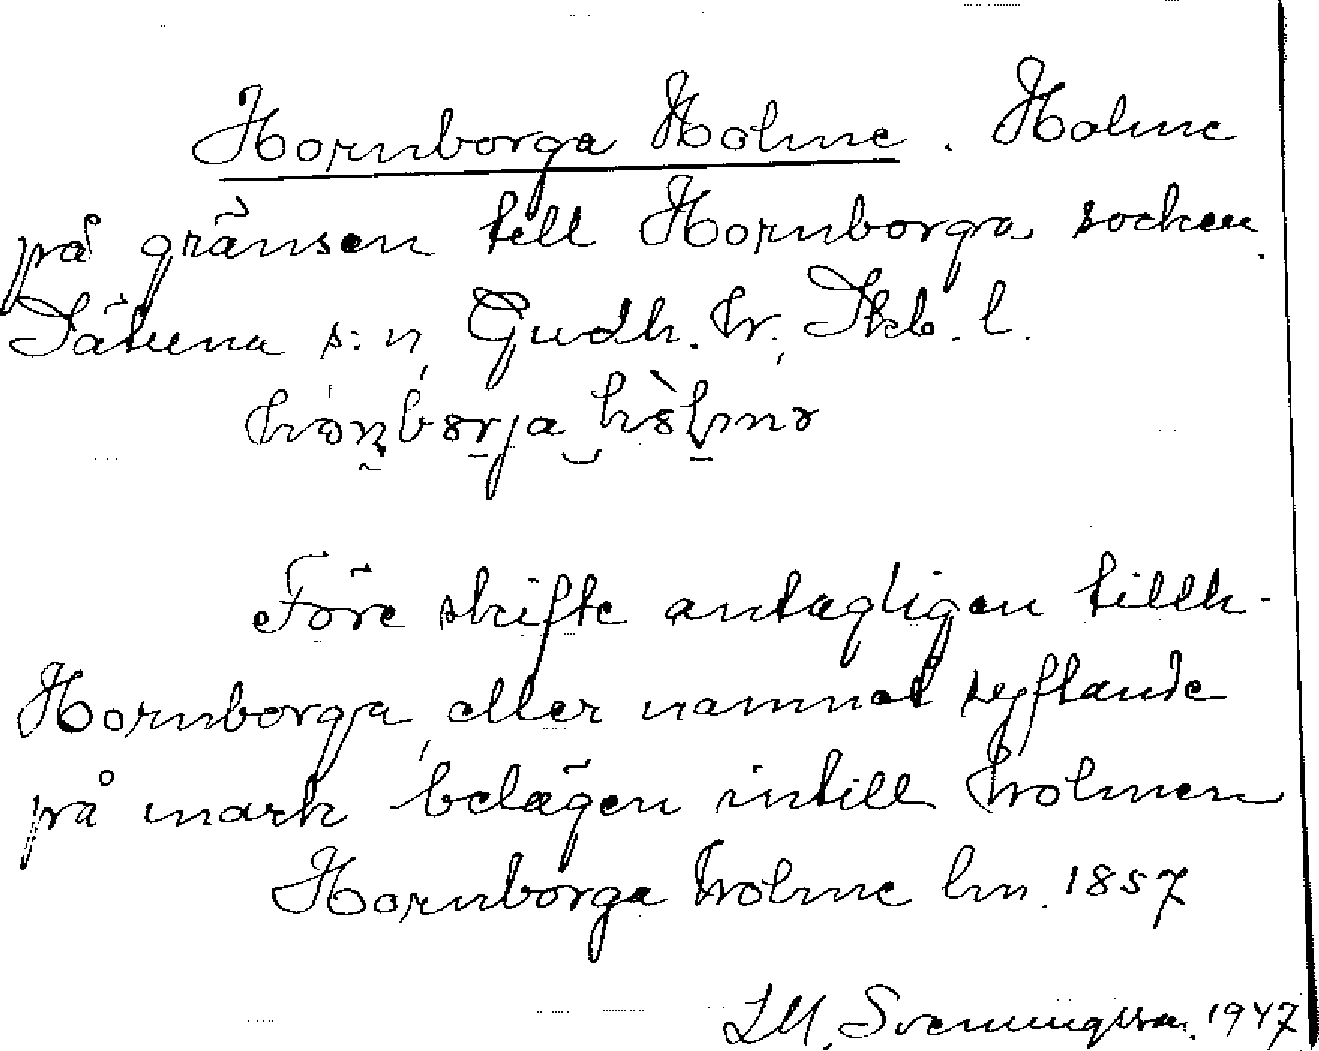 Hornborga Holme. Holme
på gränsen till Hornborga socken.
Sätuna s:n, Gudh. hr., Skb. l.

Före skifte antagligen tillh.
Hornborga, eller namnet syftande
på mark belägen intill holmen
Hornborga holme lm. 1857
I.M. Svenningsson. 1947